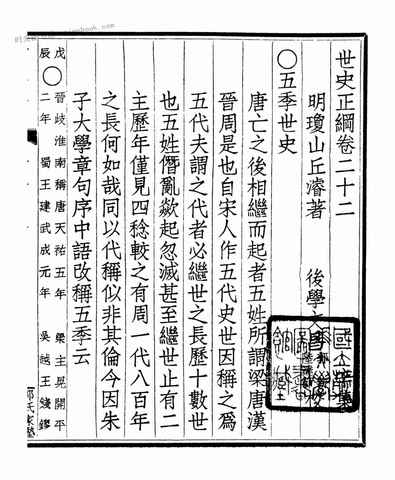 世史正綱卷二十二
明瓊山丘濬著 後學
○五季世史
唐亡之後相繼而起者五姓所謂梁唐漢
晉周是也自宋人作五代史世因稱之爲
五代夫謂之代者必繼世之長歷十數世
也五姓僭亂歘起忽滅甚至繼世止有二
主歷年僅見四稔較之有周一代八百年
之長何如哉同以代稱似非其倫今因朱
子大學章句序中語改稱五季云
戊 ○ 晉岐淮南稱唐天祐五年 梁主晃開平
辰 二年 蜀王建武成元年 吳越王錢鏐